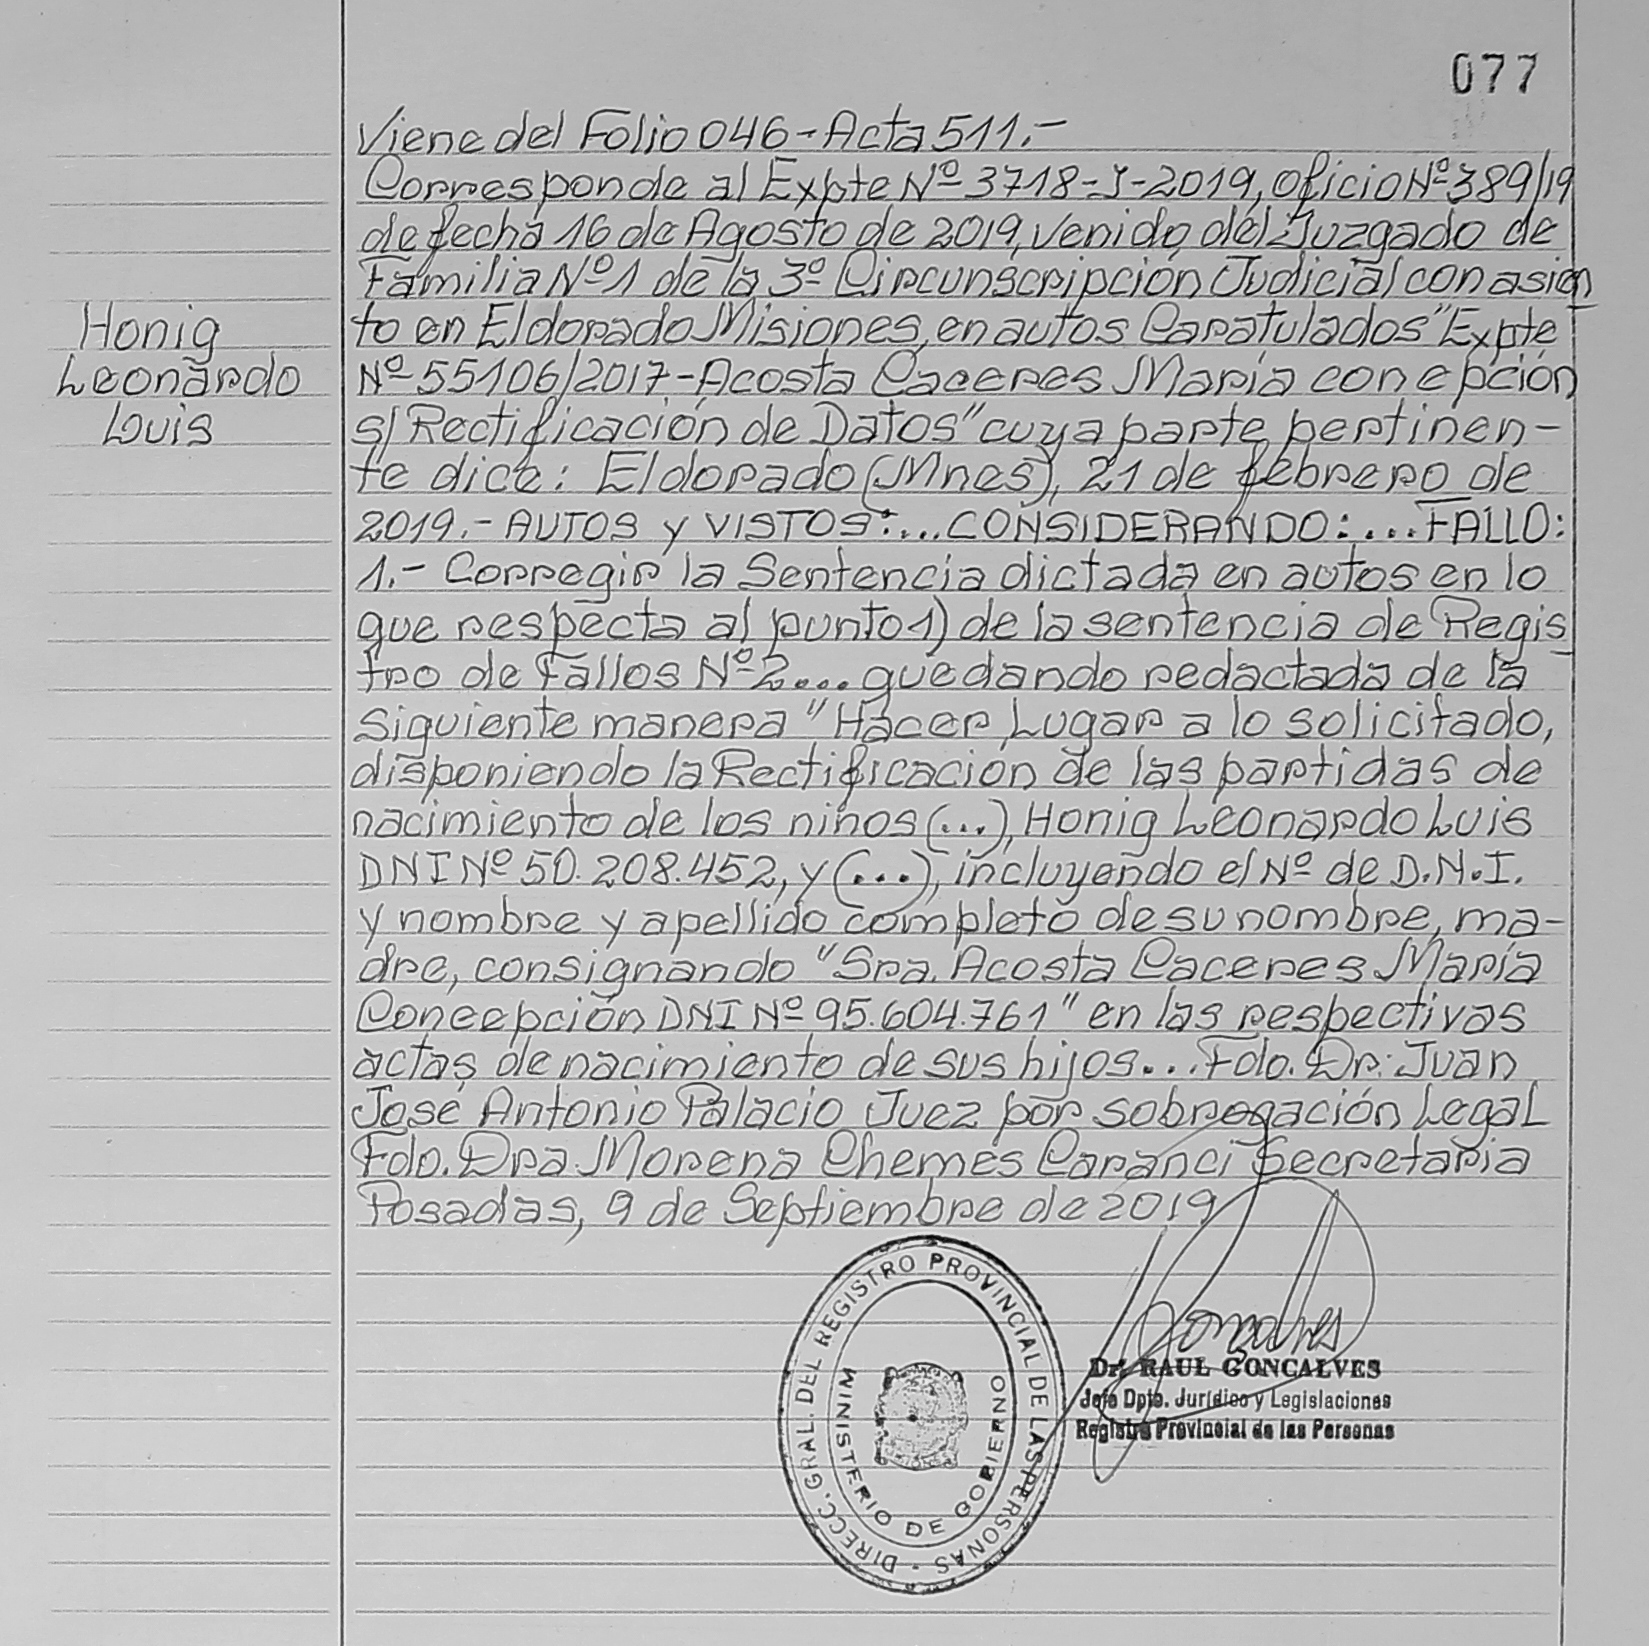 077
Viene del Folio 046-Acta 511.-
Corresponde al Expte Nº 3718-J-2019, oficio Nº 389/19
de fecha 16 de Agosto de 2019, venido del Juzgado de
Familia Nº 1 de la 3º Circunscripción Judicial con asien
to en Eldorado Misiones, en autos Caratulados "Expte
Nº 55106/2017-Acosta Caceres María concepción
s/Rectificación de Datos" cuya parte pertinen-
te dice: Eldorado (Mnes), 21 de febrero de
2019.- AUTOS y VISTOS:...CONSIDERANDO:....FALLO:
1.- Corregir la Sentencia dictada en autos en lo
que respecta al punto 1) de la sentencia de Regis
tro de Fallos Nº 2.... quedando redactada de la
siguiente manera "Hacer Lugar a lo solicitado,
disponiendo la Rectificación de las partidas de
nacimiento de los niños (...), Honig Leonardo Luis
DNI Nº 50.208.452, y (...), incluyendo el Nº de D.N.I.
y nombre y apellido completo de su nombre, ma-
dre, consignando "Sra. Acosta Caceres María
Concepción DNI Nº 95.604.761" en las respectivas
actas de nacimiento de sus hijos... Fdo. Dr. Juan
José Antonio Palacio Juez por sobrogación Legal
Fdo. Dra Morena Chemes Caranci Secretaria
Posadas, 9 de Septiembre de 2019
Honig
Leonardo
Luis
DIRECC. GRAL. DEL REGISTRO PROVINCIAL DE LAS PERSONAS -
MINISTERIO DE GOBIERNO
Dr. RAUL GONCALVES
Jefe Dpto. Jurídico y Legislaciones
Registro Provincial de las Personas